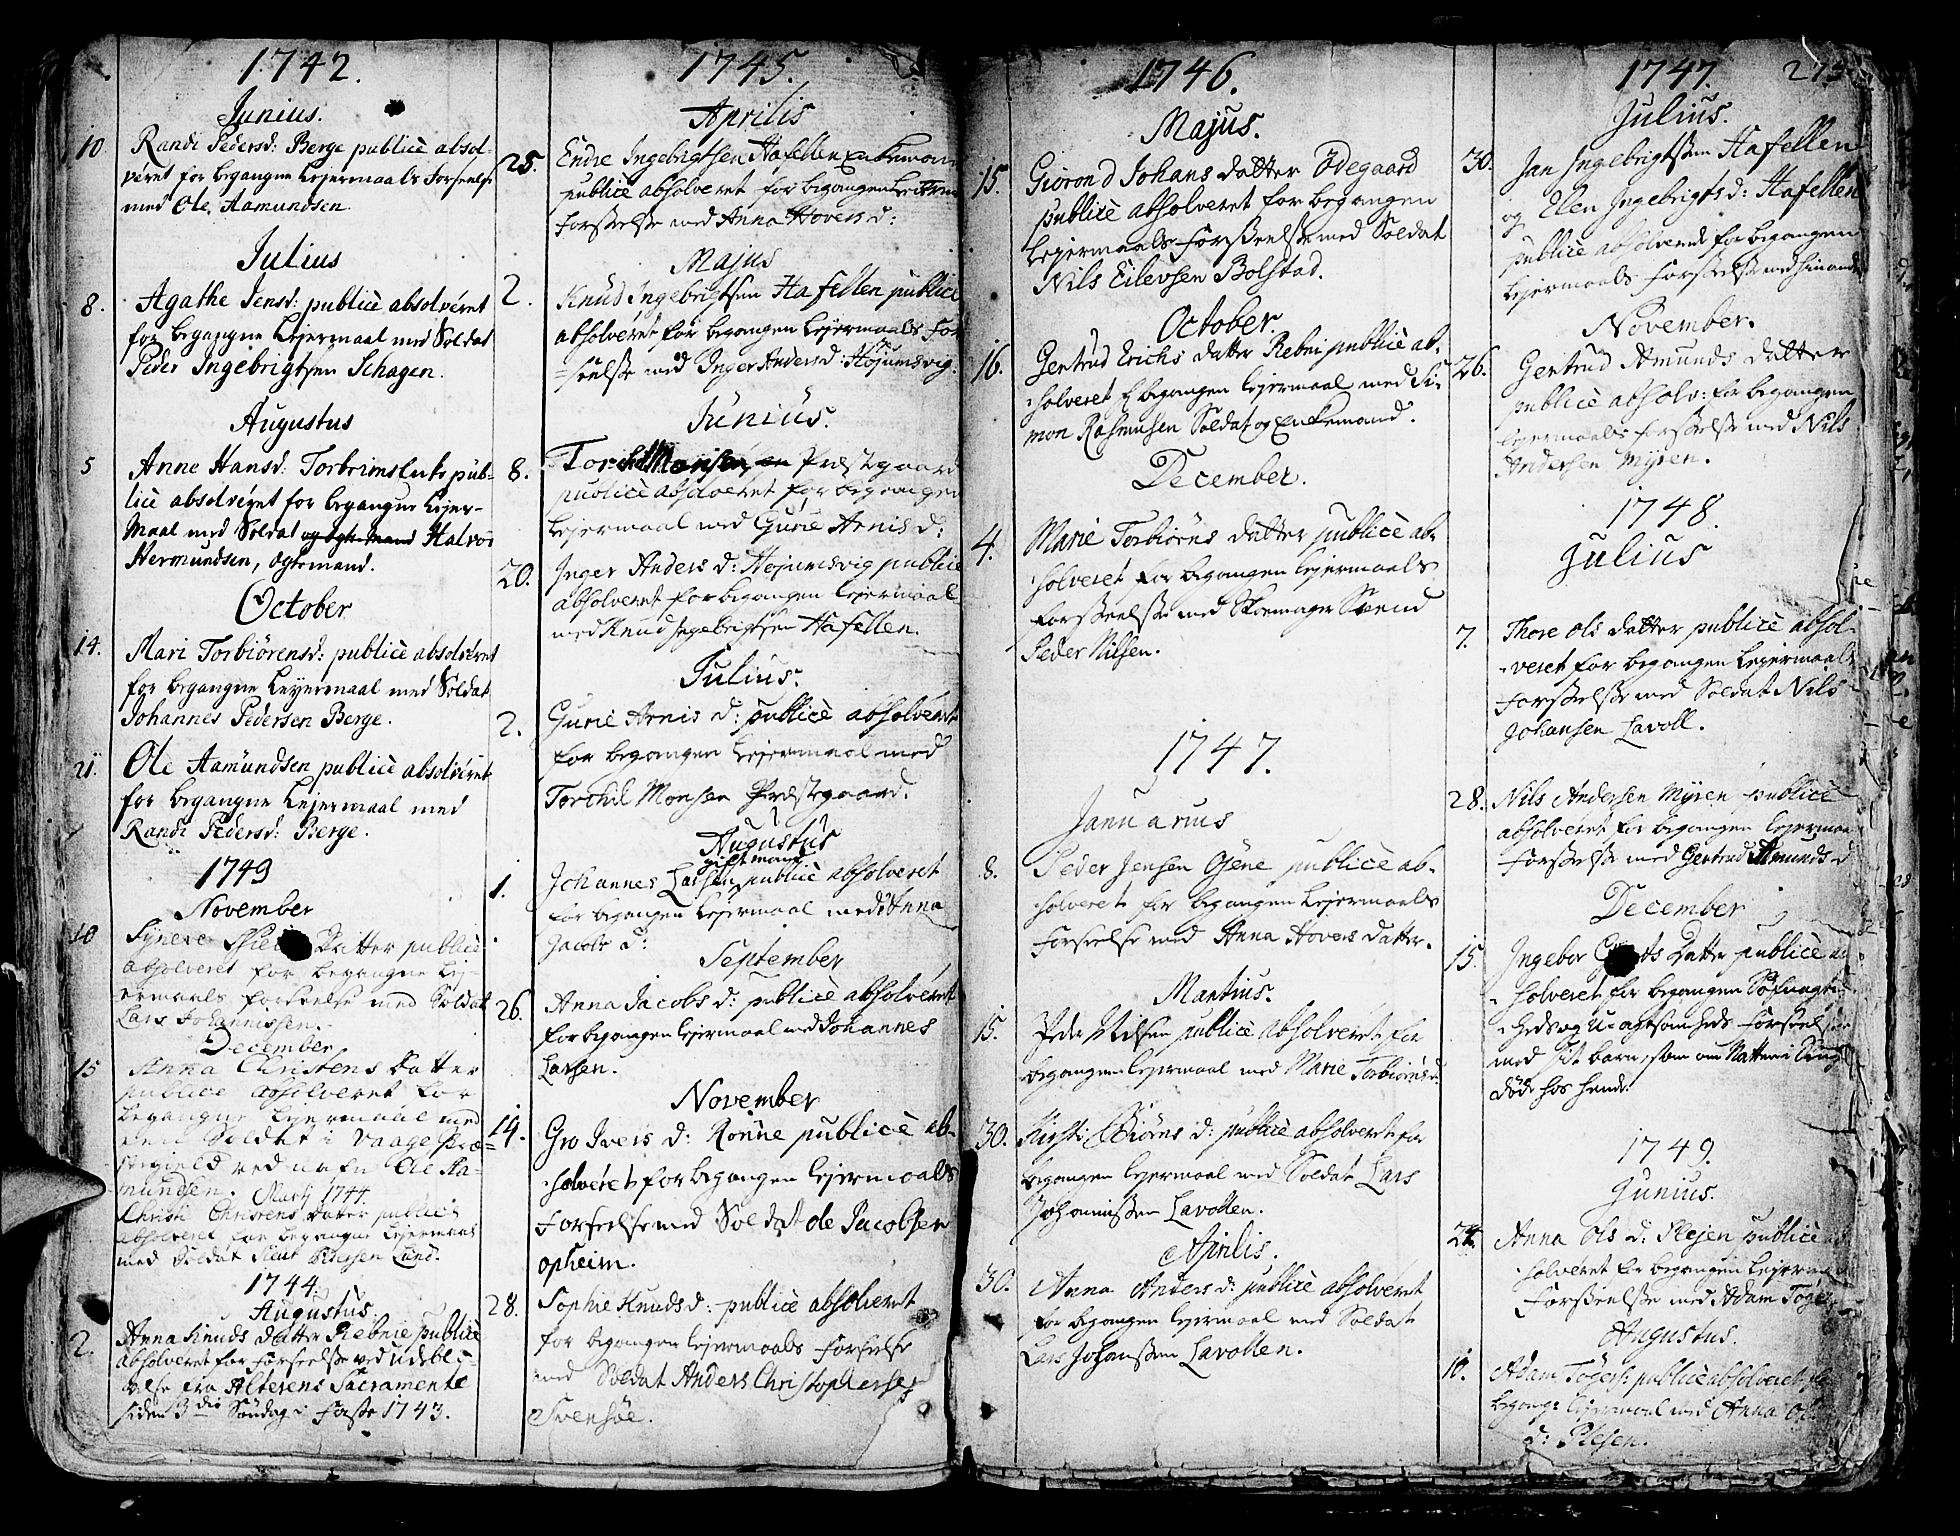 1742.
Junius.
10 Randi Pedersd: Berge publicè absol-
veret for begangne Lejermaals Forseelse
med Ole Aamundsen.
Julius
8. Agathe Jensd: publicè absolveret
for begangne Lejermaal med Soldat
Peder Ingebrigtsen Schagen.
Augustus
5 Anne Hansd: pub-
licè absolveret for begangne Lejer-
Maal med Soldat og Egte Mand Halvor
Hermundsen, Ogtemand.
October
14. Mari Torbiørensd: publicè absolveret
for begangne Leyermaal med Soldat
Johannes Pedersen Berge.
21. Ole Aamundsen publicè absolveret
for begangne Lejermaal med
Randi Pedersd: Berge.
1743
November
10 Syneve Datter publicè
absolveret for begangne Lej-
ermaals forseelse med Soldat
Lars Johannissen.
December
15 Anna Christens Datter
publice absolveret for
begangne Lejermaal med
en Soldat i Vaage Præ-
stegield ved nafn Ole Aa-
mundsen. Martj 1744.
Christi Christens Datter publicè
absolveret for begangne Lejermaal
med Soldat Knut Pedersen Lund.
1744.
Augustus.
2. Anna Knuds datter Rebnie publicè
absolveret for Forseelse ved udebli-
velse fra Alterens Sacramente
siden 3die Søndag i Faste 1743.
1745.
Aprilis
25. Endre Ingebrigtsen Hafellen Enkemand
publicè absolveret for begangen Leierm
Forseelse med Anna Hovers d:
Majus
2. Knud Ingebrigtsen Hafellen publicè
absolveret for begangen Lejermaals For
=seelse med Inger Anders d: Højumsvig.
Junius.
8. Torchil Monsen, en Præstegaard
publicè absolveret for begangen
Lejermaal med Gurie Arnis d:
20. Inger Anders d: Højumsvig publicè
absolveret for begangen Lejermaal
med Knud Ingebrigtsen Hafellen.
Julius.
2. Gurie Arnis d: publicè absolveret
for begangen Lejermaal med
Torchil Monsen Præstegaard.
Augustus
gift mand
1. Johannes Larsen publicè absolveret
for begangen Lejermaal med Anna
Jacobs d:
September
26. Anna Jacobs d: publicè absolveret
for begangen Lejermaal med Johannes
Larsen.
November
14. Gro Ivers d: Ronne publicè ab-
solveret for begangen Lejermaals
Forseelse med Soldat Ole Jacobsen
opheim.
28. Sophie Knuds d: publicè absolveret
for begangen Lejermaals Forseelse
med Soldat Anders Christophersen
Svensøe.
1746.
Majus.
15. Giørond Johans datter Ødegaard
publicè absolveret for begangen
Lejermaals Forseelse med Soldat
Nils Eilevsen Bolstad.
October.
16. Gertrud Erichs datter Rebni publicè ab-
solveret f begangen Lejermaal med Si-
mon Rasmusen Soldat og Enkemand.
December.
4. Marie Torbiørns datter publicè ab-
solveret for begangen Lejermaals
Forseelse med Skoemager Svend
Peder Nilsen.
1747.
Januarius
8. Peder Jensen Giene publicè ab-
solveret for begangen Lejermaals
Forseelse med Anna Hovers datter.
Martius.
15. Peder Nilsen publicè absolveret for
begangen Lejermaal med Marie Torbiørnsd.
30. Kirsti Biørns d: publicè absolveret for
begangen Lejermaal med Soldat Lars
Johannissen Lavollen.
Aprilis.
30. Anna Anders d: publicè absolveret
for begangen Lejermaal med Soldat
Lars Johansen Lavollen.
1747. 275
Julius.
30. Jan Ingebrigtsen Hafellen
og Elen Ingebrigts d: Hafellen
publicè absolverede for begangen
Lejermaals Forseelse med hinanden
November.
26. Gertrud Amunds datter
publicè absolv: for begangen
Lejermaals Forseelse med Nils
Andersen Myren.
1748.
Julius
7. Thore Ols datter publicè absol-
veret for begangen Lejermaals
Forseelse med Soldat Nils
Johansen Lavoll.
28. Nils Andersen Myren publicè
absolveret for begangen Lejermaa
Forseelse med Gertrud Amunds d
December
15. Ingebor Datter publicè a
solveret for begangen
heds og U-agtsomheds Forseelse
med Sit barn, som om Natten i Seng
døde hos hende.
1749.
Junius.
24. Anna Ols d. Plejen publicè
solveret for begangen Lejerma
Forseelse med Adam Tøger
Augustus.
10. Adam Tøgers: publicè absolveret f
begang: Lejermaal med Anna Ols
d: Plesen.